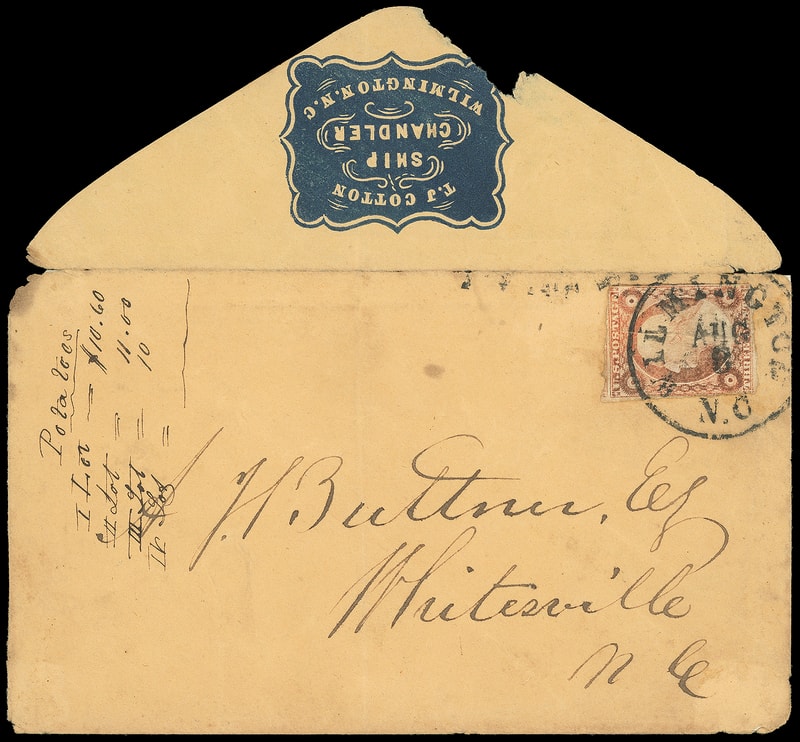 T. J COTTON
SHIP
CHANDLER
WILMINGTON. N. C
WILMINGTON
AUG
6
N.C
U.S. POSTAGE
THREE
Potatoes
I Lot — $10.60
II Lot = 11.00
III Lot = 10
IV Lot =
J. H Buttner, Esq
Whitesville
N C